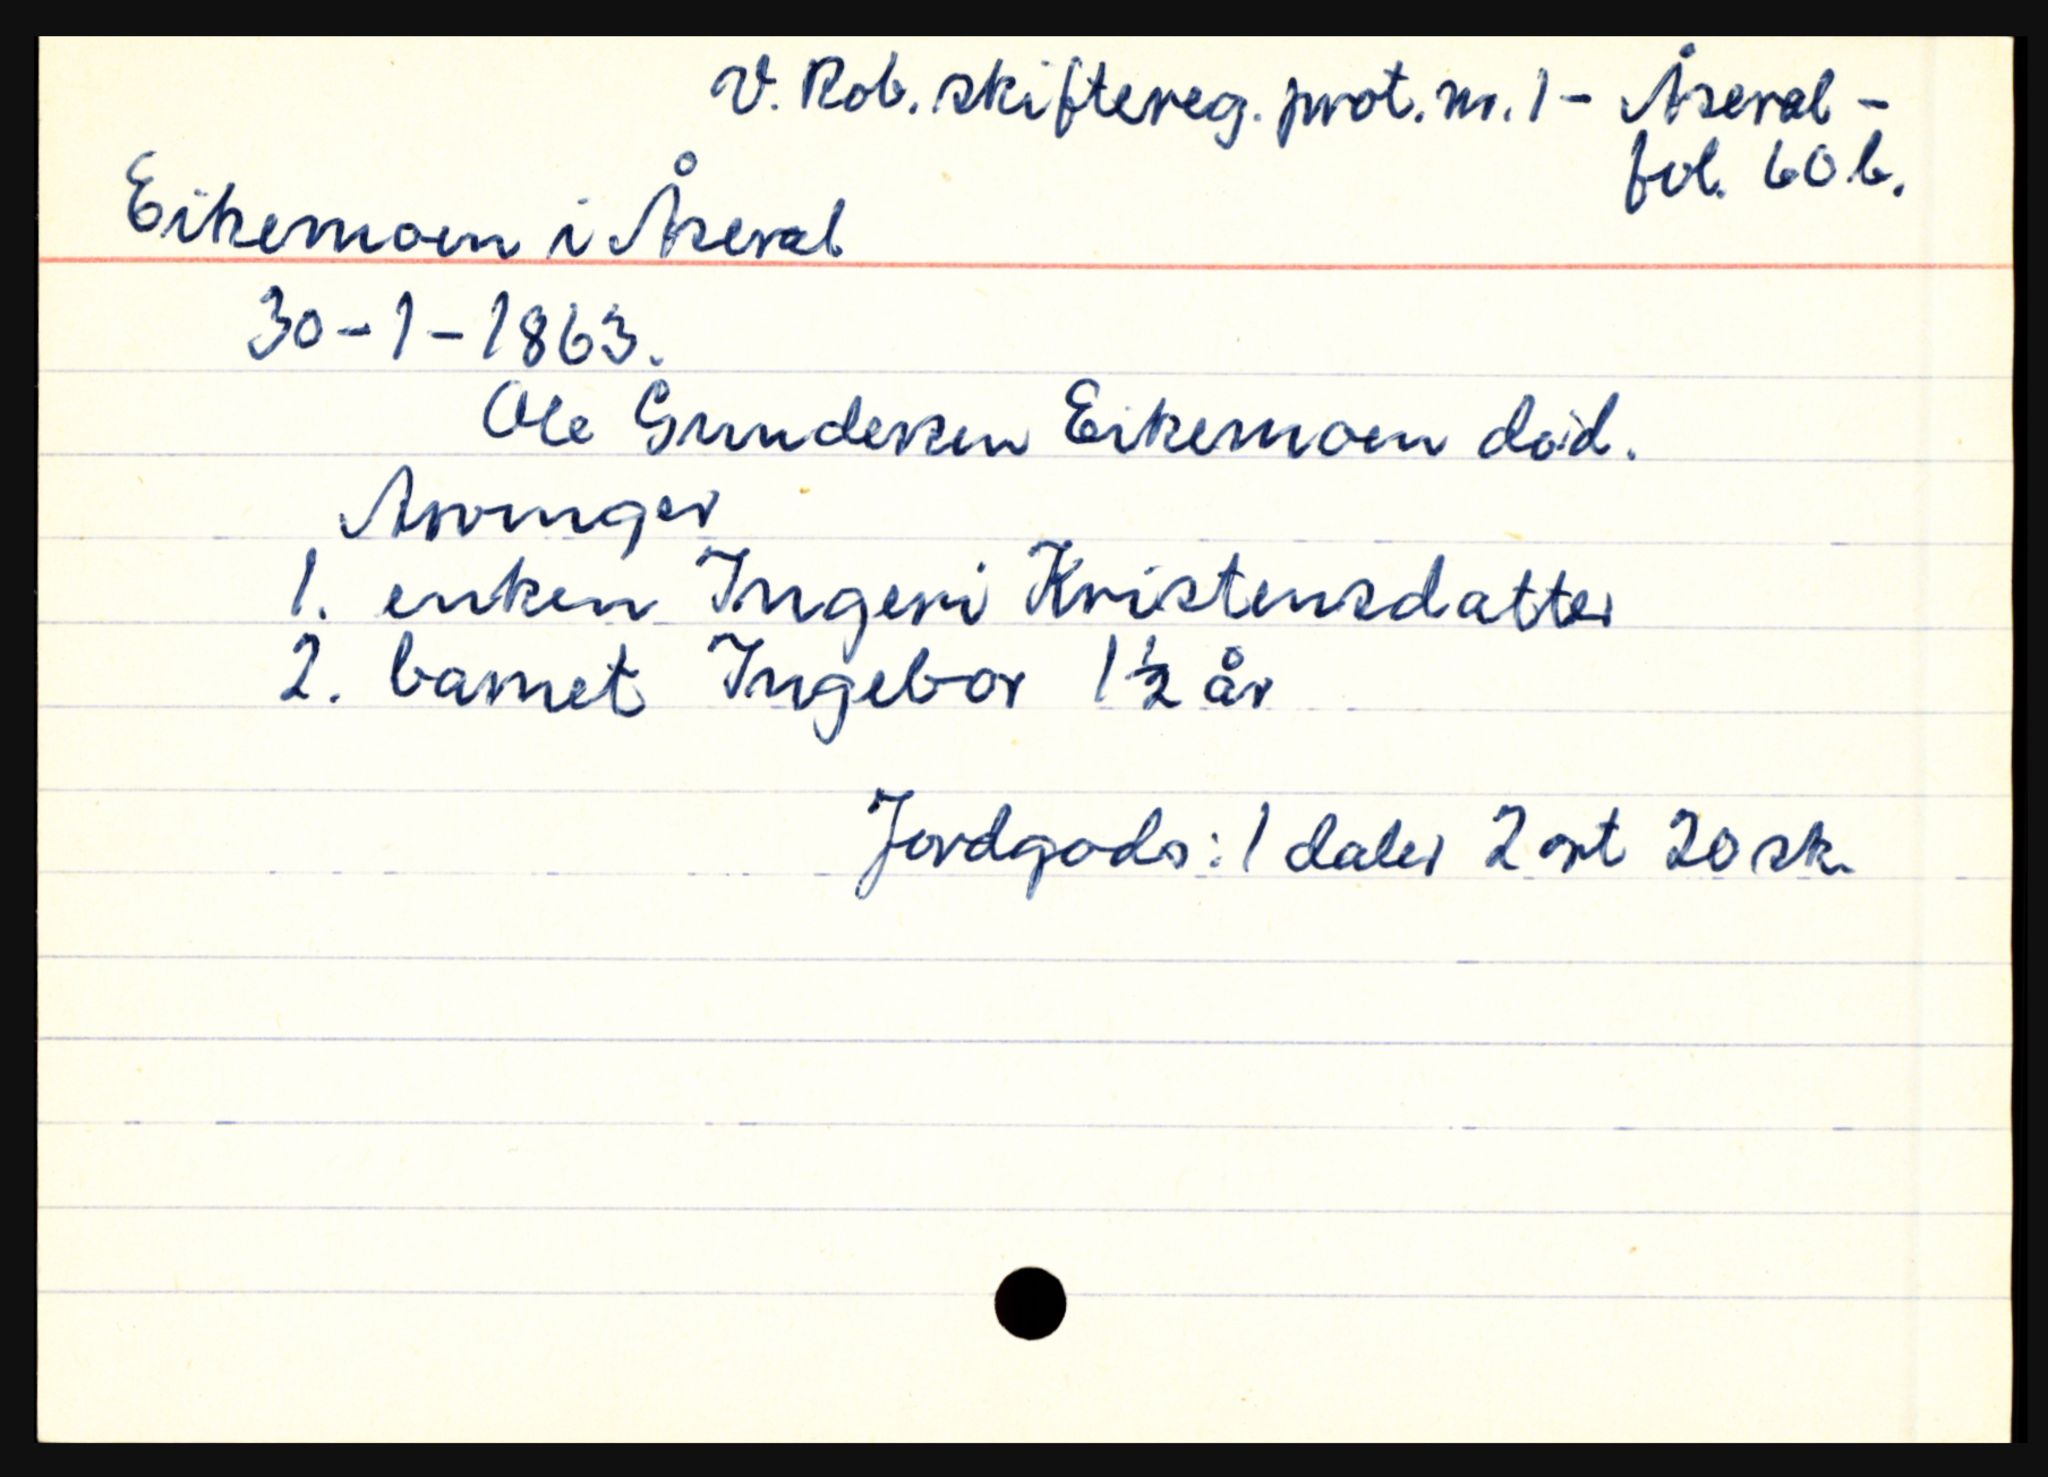 V. Rob. skiftereg. prot. nr. 1 - Åseral -
fol. 60 b.
Eikemoen i Åseral
30-1-1863.
Ole Gundersen Eikemoen död.
Arvinger
1. enken Ingeri Kristensdatter
2. barnet Ingebor 1 1/2 år
Jordgods: 1 daler 2 ort 20 sk.